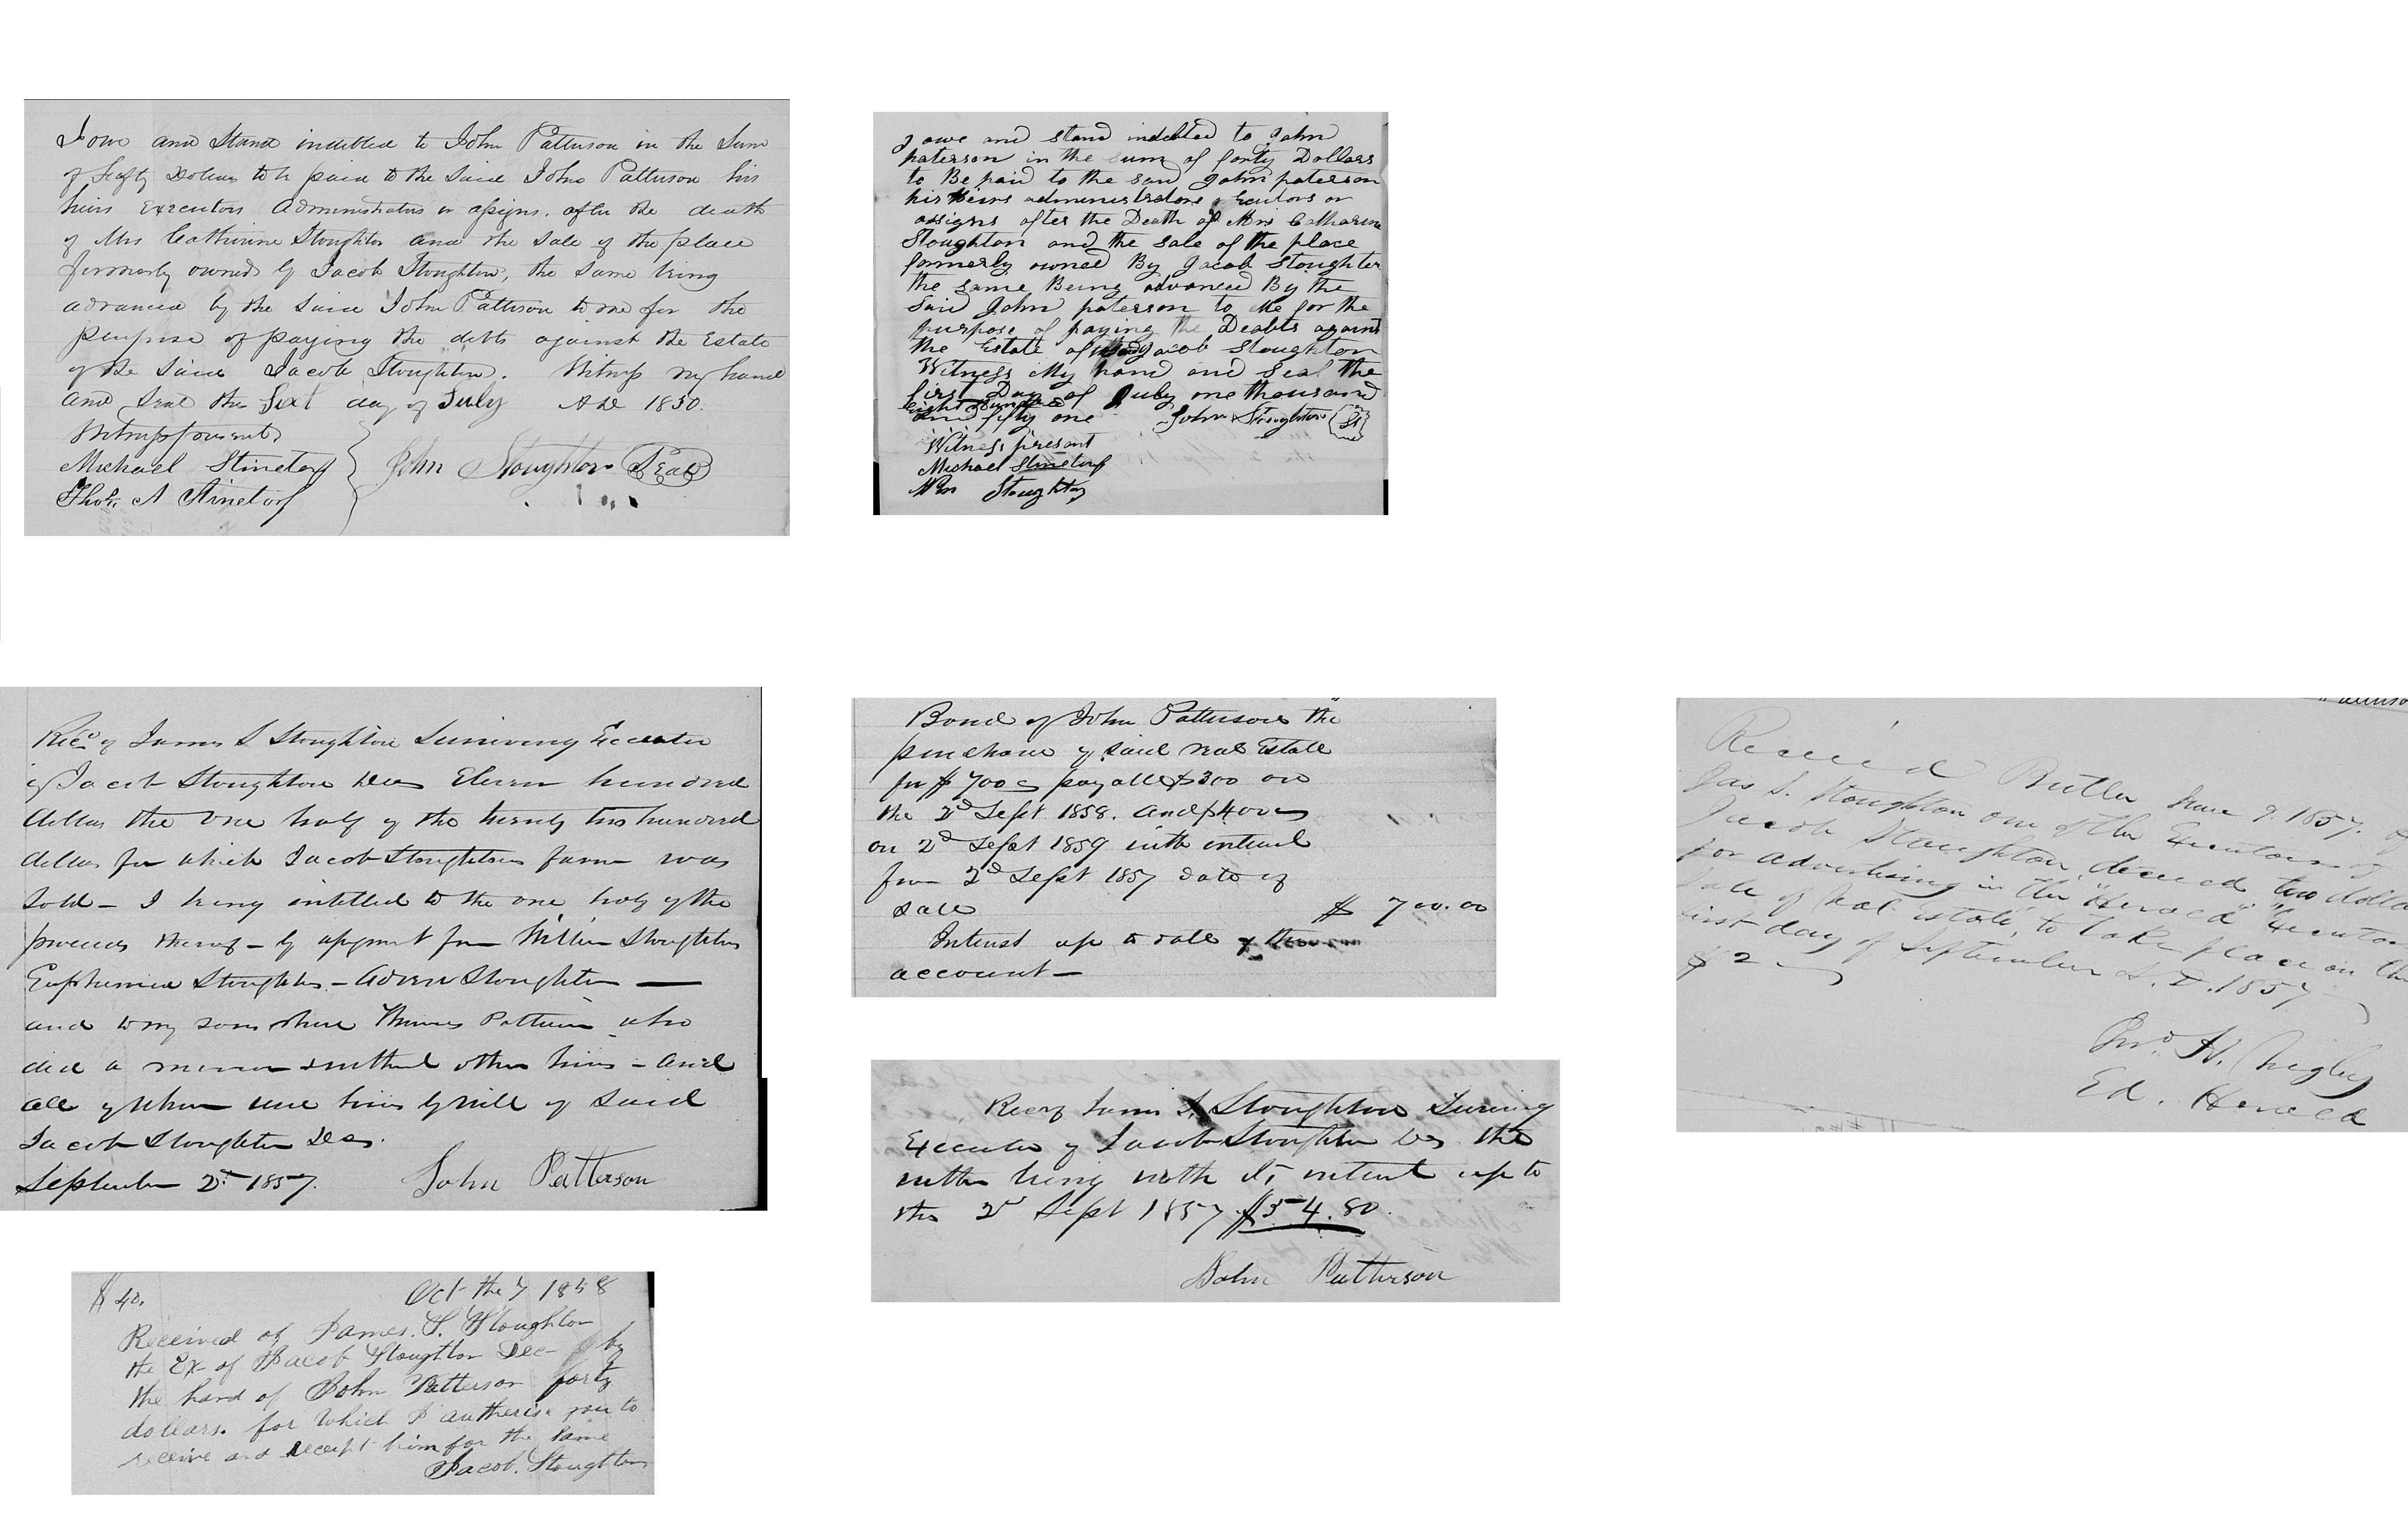 I owe and Stand indebted to John Patterson in the Sum
of Fifty Dollars to be paid to the Said John Patterson his
heirs Executors Administrators or assigns. after the death
of Mrs Catherine Stoughton and the Sale of the place
formerly owned by Jacob Stoughton, the Same being
advanced by the Said John Patterson to me for the
purpose of paying the debts against the Estate
of the Said Jacob Stoughton. Witness my hand
and Seal the first day of July AD 1850.
Witness present
Michael Stinetorf
Thos. A Stinetorf
John Stoughton Seal
I owe and stand indebted to John
paterson in the sum of forty Dollars
to Be paid to the said John paterson
his Heirs administrators Executors or
assigns after the Death of Mrs Catharine
Stoughton and the sale of the place
formerly owned By Jacob Stoughton
the same Being advanced By the
Said John paterson to Me for the
purpose of paying the Deabts against
the Estate of Jacob Stoughton
Witness My hand and Seal the
first Day of July one thousand
eight hundred
and fifty one John Stoughton
Witness present
Michael Stinetorf
Wm Stoughton
Recd of James S Stoughton Surviving Executor
of Jacob Stoughton Des Eleven hundred
dollars the one half of the twenty two hundred
dollars for which Jacob Stoughtons farm was
Sold – I being intitled to the one half of the
proceeds thereof – by assignment from William Stoughton
Euphemia Stoughton – Adven Stoughton —
and to my sons share Thomas Patterson who
died a minor & without other heirs – and
all of whom were heirs by will of Said
Jacob Stoughton Des.
September 2d 1857. John Patterson
Bond of John Patterson the
purchaser of said real Estate
for $700 payable $300 on
the 2d Sept 1858. and $400
on 2d Sept 1859 with interest
from 2d Sept 1857 date of
sale $700.00
Interest up to date of
account –
Recd of James S. Stoughton Surviving
Executor of Jacob Stoughton Des the
within being with its interest up to
this 2d Sept 1857 $54.80.
John Patterson
$40. Oct the 7 1858
Received of James. S. Stoughton
the Ex- of Jacob Stoughton Dec- by
the hand of John Patterson forty
dollars. for Which I autherise you to
receive and receipt him for the Same
Jacob. Stoughton
Received Butler June 9. 1857. of
Jas S. Stoughton one of the Executors of
Jacob Stoughton, deceased two dollars
for advertising in the "Herald" Executors
Sale of Real Estate, to take place on the
first day of September A.D. 1857
$2
Jno. H. Negley
Ed. Herald